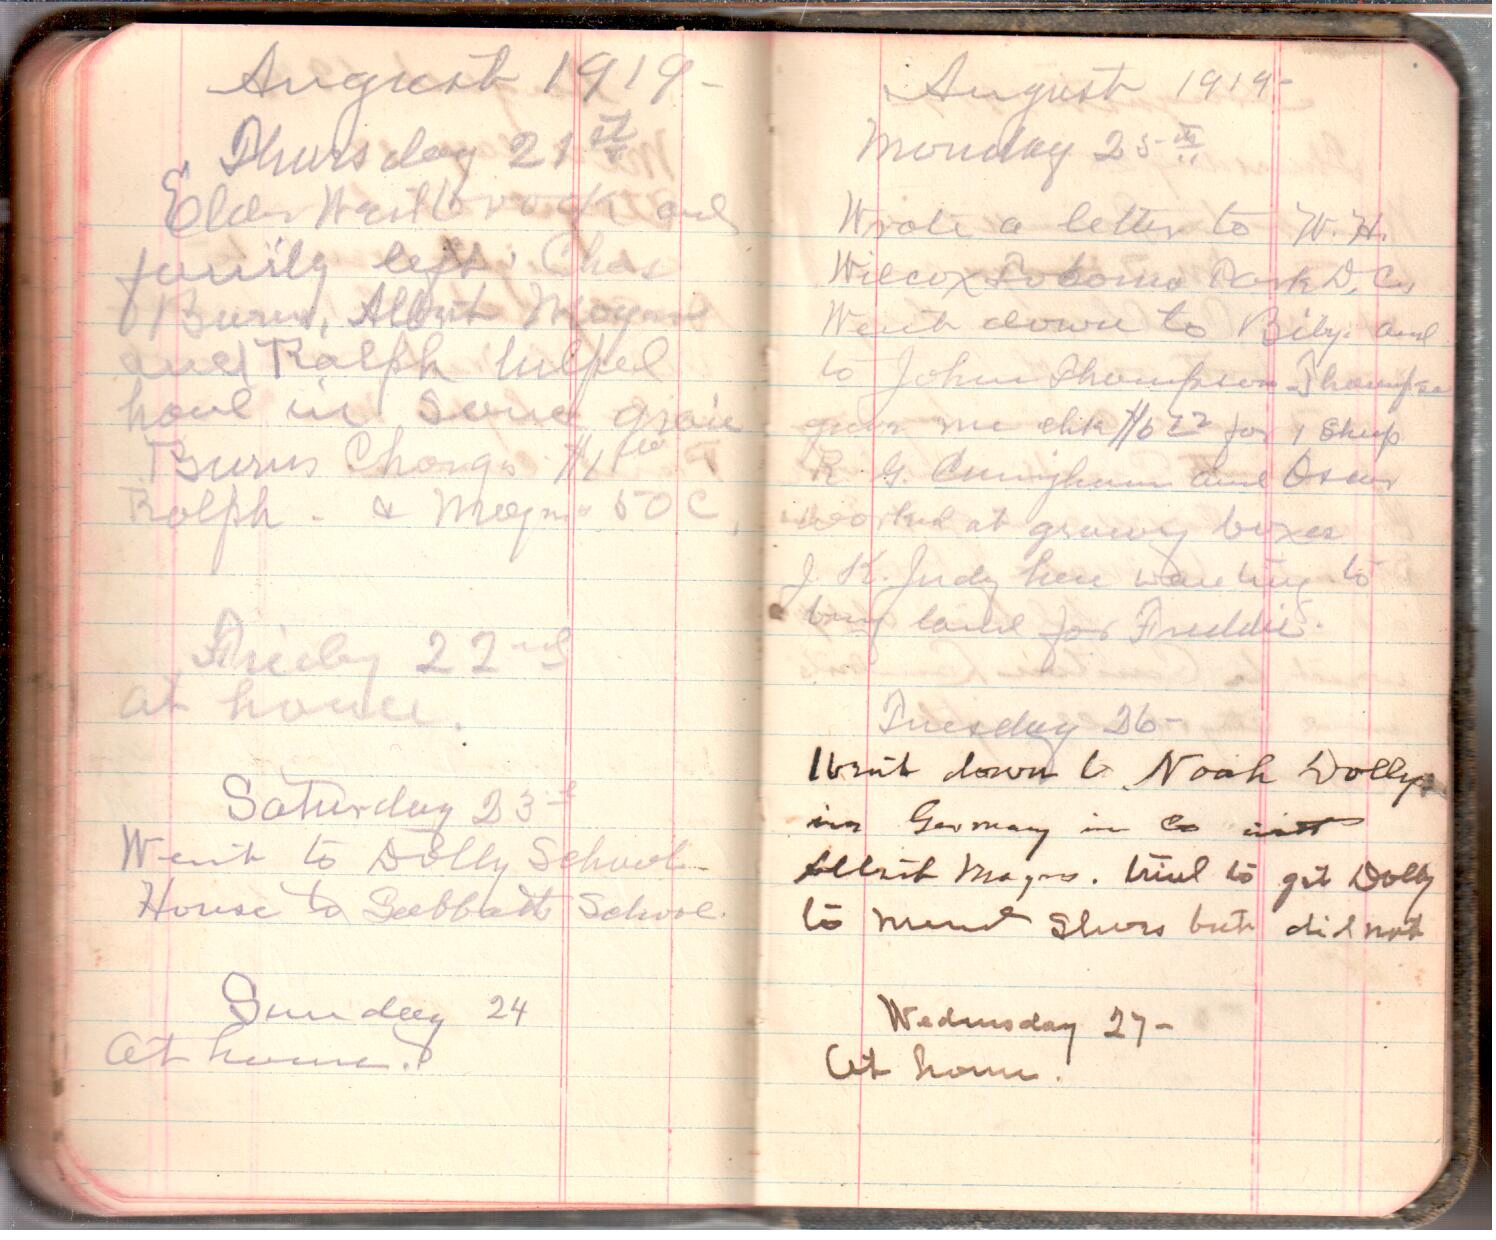 August 1919-
Thursday 21st
Elder Westbrook and
family left. Chas
Burns, Albert Magnus
and Ralph helped
howl in some grain
Burns Charges $1.00
Ralph - & Magnus 50 C,
Friday 22nd
at home.
Saturday 23
Went to Dolly School
House to Sabbath School.
Sunday 24
At home.
August 1919-
Monday 25th
Wrote a letter to W. H.
Wilcox Park D. C,
Went down to and
to John Thompson Thompson
me for 1 sheep
R. G. Cuningham and Oscar
worked at boxes
J. K. Judy here wanting to
buy land for Freddie.
Tuesday 26-
Went down to Noah Dolly
in Germany in
Albert Magns. tried to get Dolly
to mend Shoes but did not
Wednesday 27-
At home.